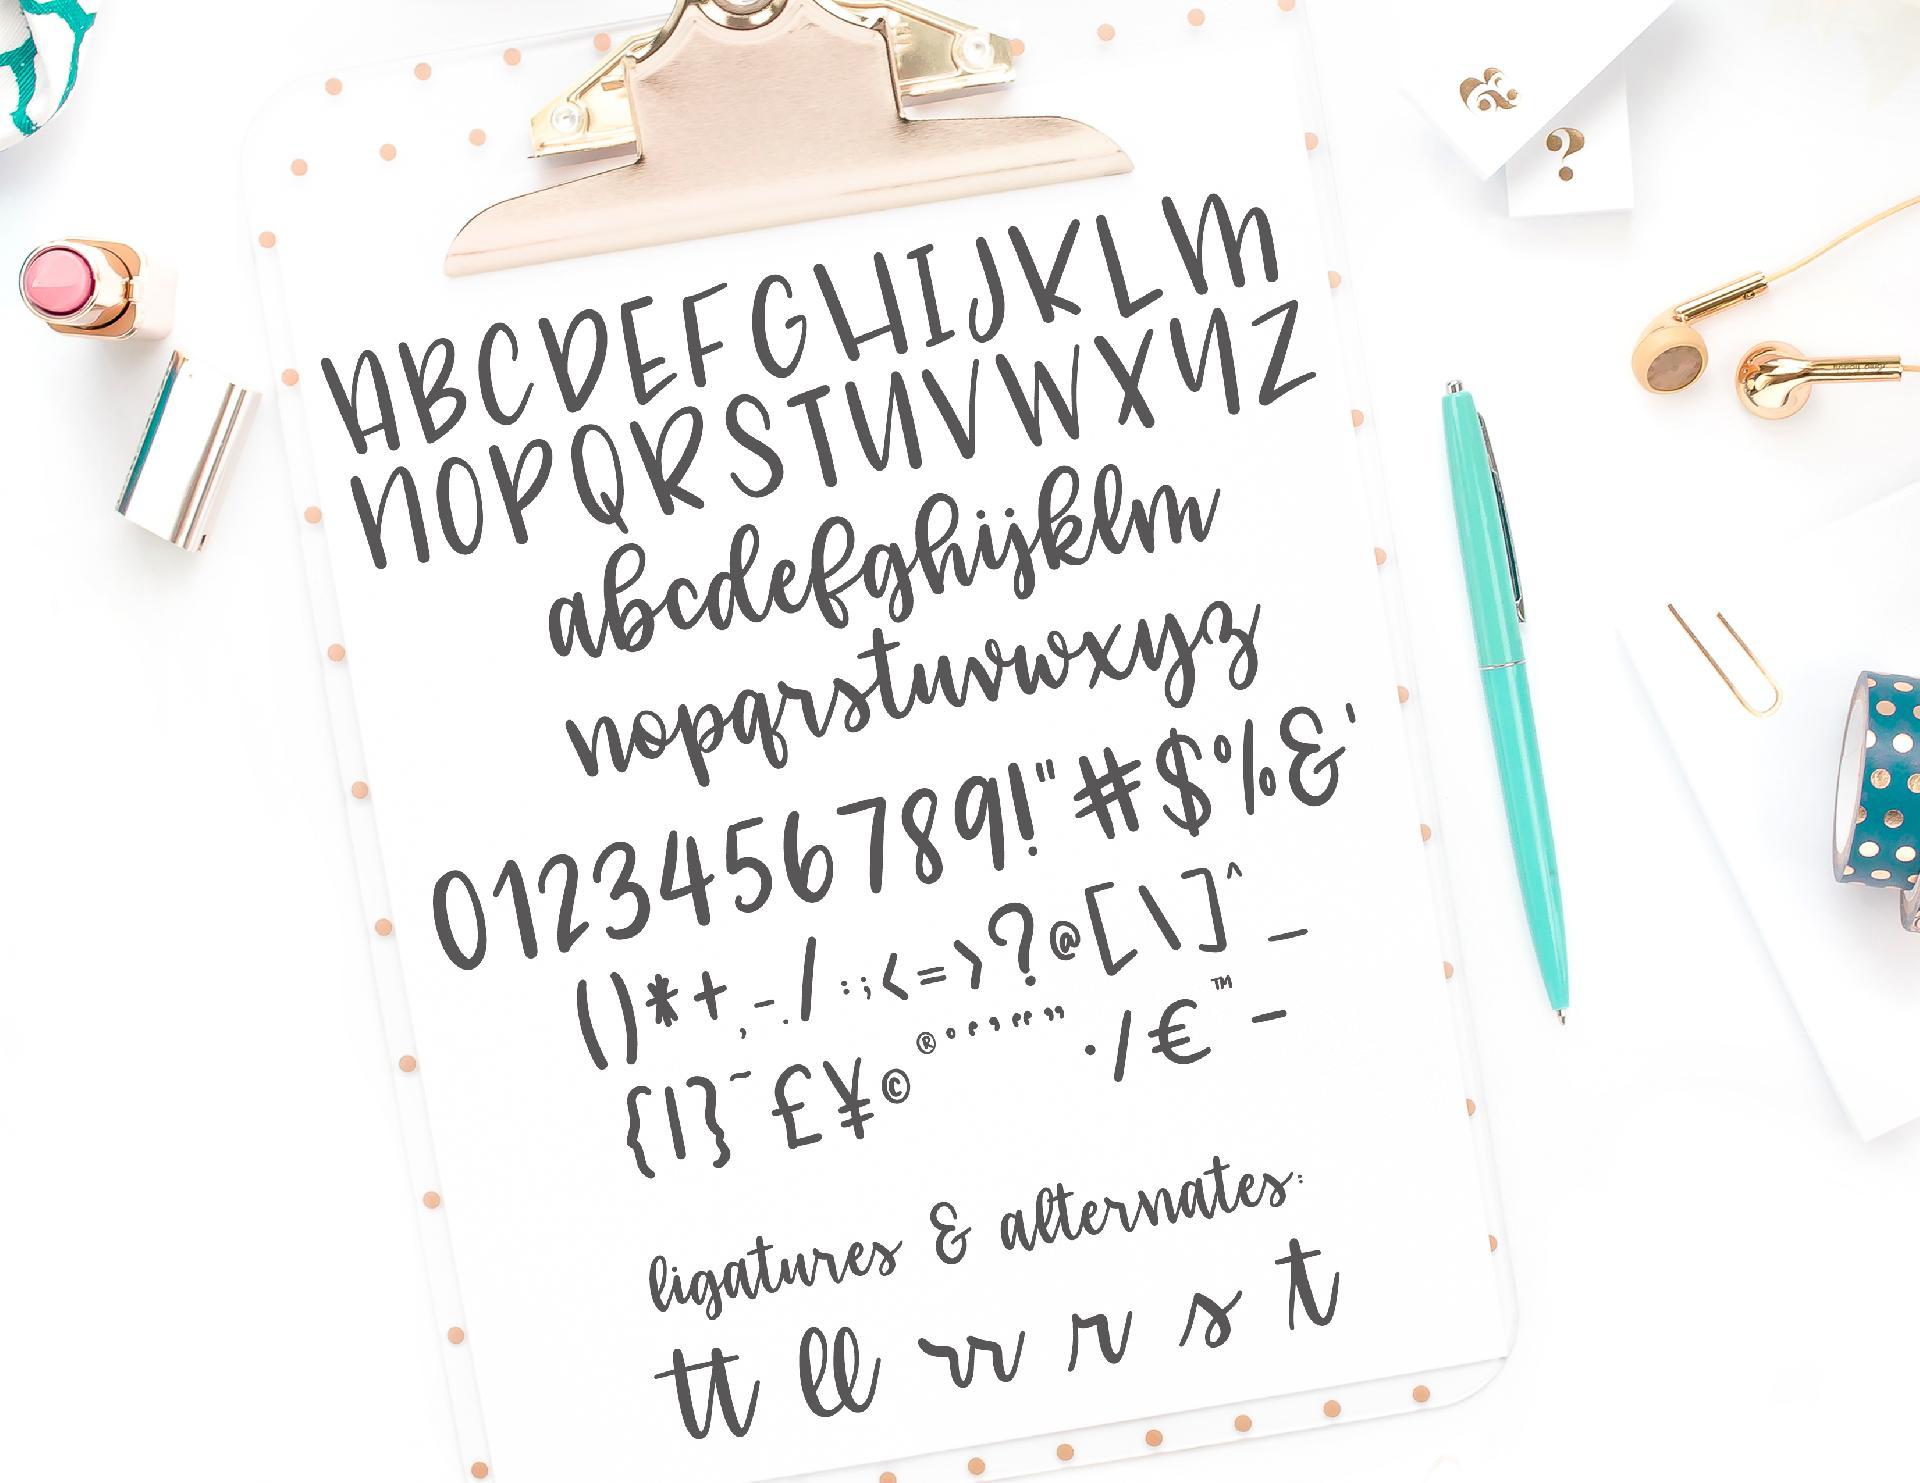 &
?
ABCDEFGHIJKLM
NOPQRSTUVWXYZ
abcdefghijklm
nopqrstuvwxyz
0123456789!"#$%&'
()*+,-./:;<=>?@[\]^_
{|}~£¥©®°‘’“”·/€™−
ligatures & alternates:
tt ll rr r s t